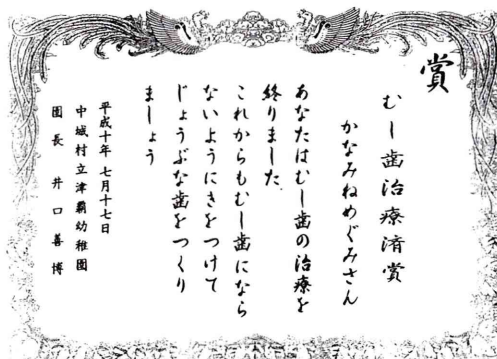 賞
むし歯治療済賞
かなみねめぐみさん
あなたはむし歯の治療を
終りました.
これからもむし歯になら
ないようにきをつけて
じょうぶな歯をつくり
ましょう
平成十年 七月十七日
中城村立津覇幼稚園
園長 井口善博